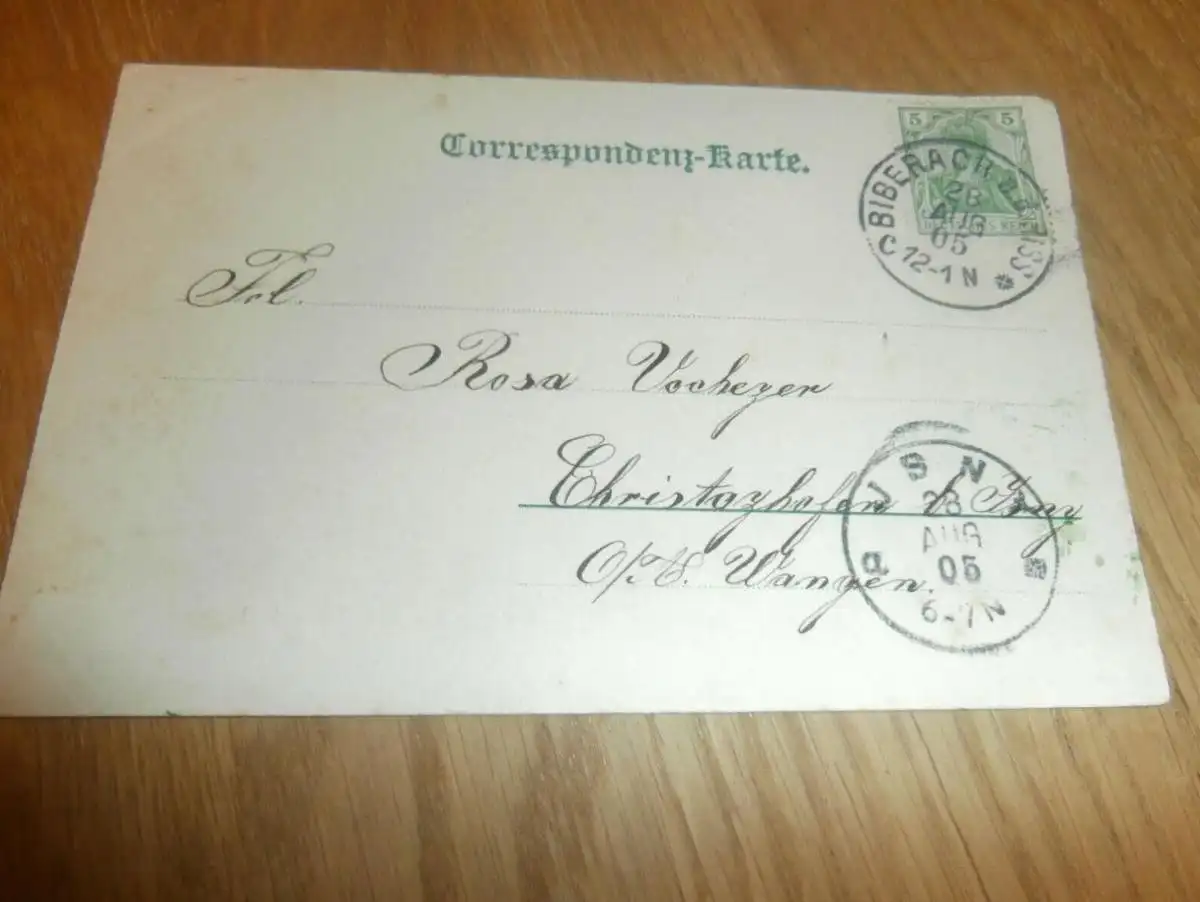 Correspondenz-Karte.
5 5
DEUTSCHES REICH
BIBERACH a.d. RISS
28
AUG
05
C 12-1 N
Frl.
Rosa Vochezer
Christazhofen b/ Isny
O/A. Wangen.
28
AUG
05
a
6-7 N